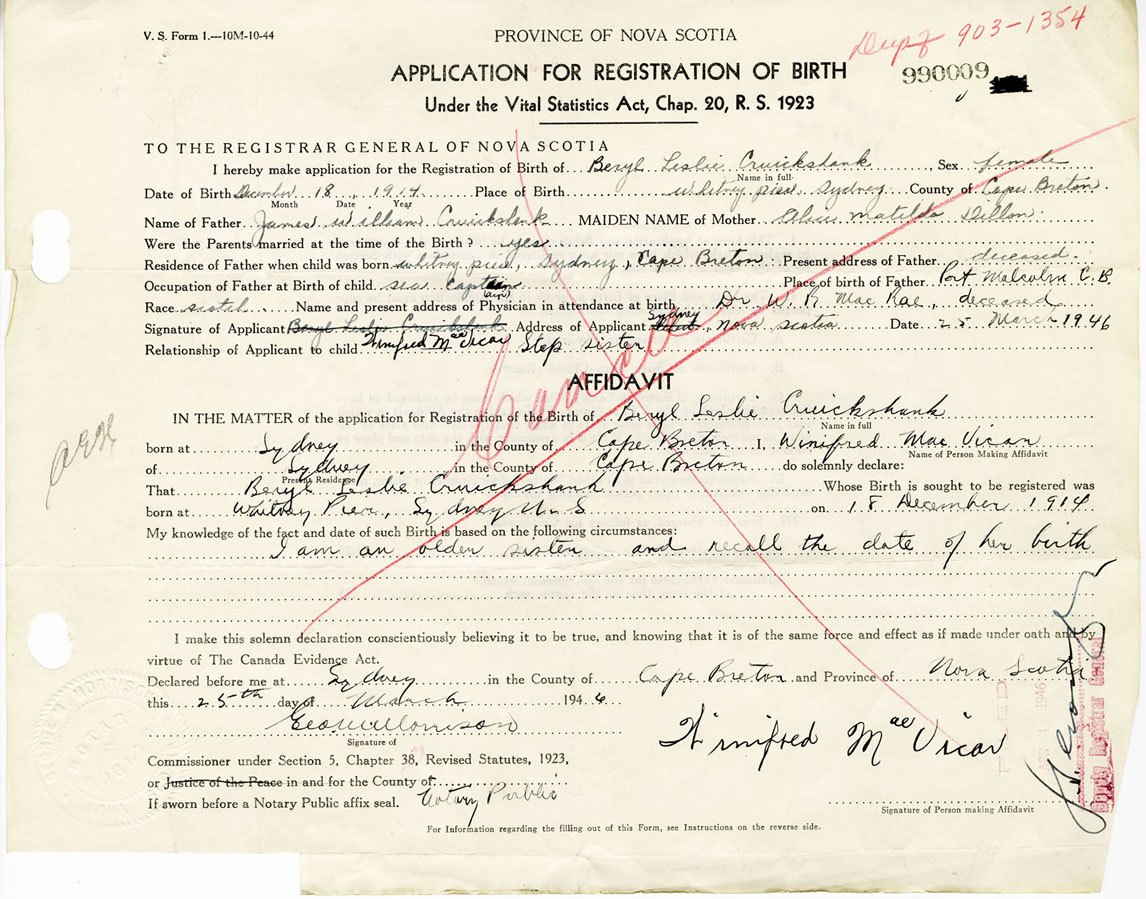 V. S. Form 1.—10M-10-44
PROVINCE OF NOVA SCOTIA
903-1354
APPLICATION FOR REGISTRATION OF BIRTH
990009
Under the Vital Statistics Act, Chap. 20, R. S. 1923
TO THE REGISTRAR GENERAL OF NOVA SCOTIA
I hereby make application for the Registration of Birth of Beryl Leslie Cruickshank, Sex female
Name in full
Date of Birth December 18, 1914 Place of Birth Whitney pier, Sydney County of Cape Breton
Month Date Year
Name of Father James William Cruickshank MAIDEN NAME of Mother Alice Matilda Dillon
Were the Parents married at the time of the Birth? yes
Residence of Father when child was born Whitney pier, Sydney, Cape Breton Present address of Father deceased
Occupation of Father at Birth of child sea Captain Place of birth of Father Port Malcolm C. B.
(ain)
Race scotch Name and present address of Physician in attendance at birth Dr. W. R. Mac Rae, deceased
Signature of Applicant Beryl Leslie Cruickshank Address of Applicant Sydney, Nova Scotia Date 25 March 1946
Relationship of Applicant to child Winifred MacVicar Step sister
Cancelled
AFFIDAVIT
IN THE MATTER of the application for Registration of the Birth of Beryl Leslie Cruickshank
Name in full
born at Sydney in the County of Cape Breton I, Winifred Mac Vicar
Name of Person Making Affidavit
of Sydney in the County of Cape Breton do solemnly declare:
Present Residence
That Beryl Leslie Cruickshank Whose Birth is sought to be registered was
born at Whitney Pier, Sydney N.S on 18 December 1914
My knowledge of the fact and date of such Birth is based on the following circumstances:
I am an older sister and recall the date of her birth
I make this solemn declaration conscientiously believing it to be true, and knowing that it is of the same force and effect as if made under oath and by
virtue of The Canada Evidence Act.
Declared before me at Sydney in the County of Cape Breton and Province of Nova Scotia
this 25th day of March 1946
Winifred MacVicar
Signature of
Commissioner under Section 5, Chapter 38, Revised Statutes, 1923,
or Justice of the Peace in and for the County of
Notary Public
If sworn before a Notary Public affix seal.
Signature of Person making Affidavit
For Information regarding the filling out of this Form, see Instructions on the reverse side.
1946
Deputy Registrar General